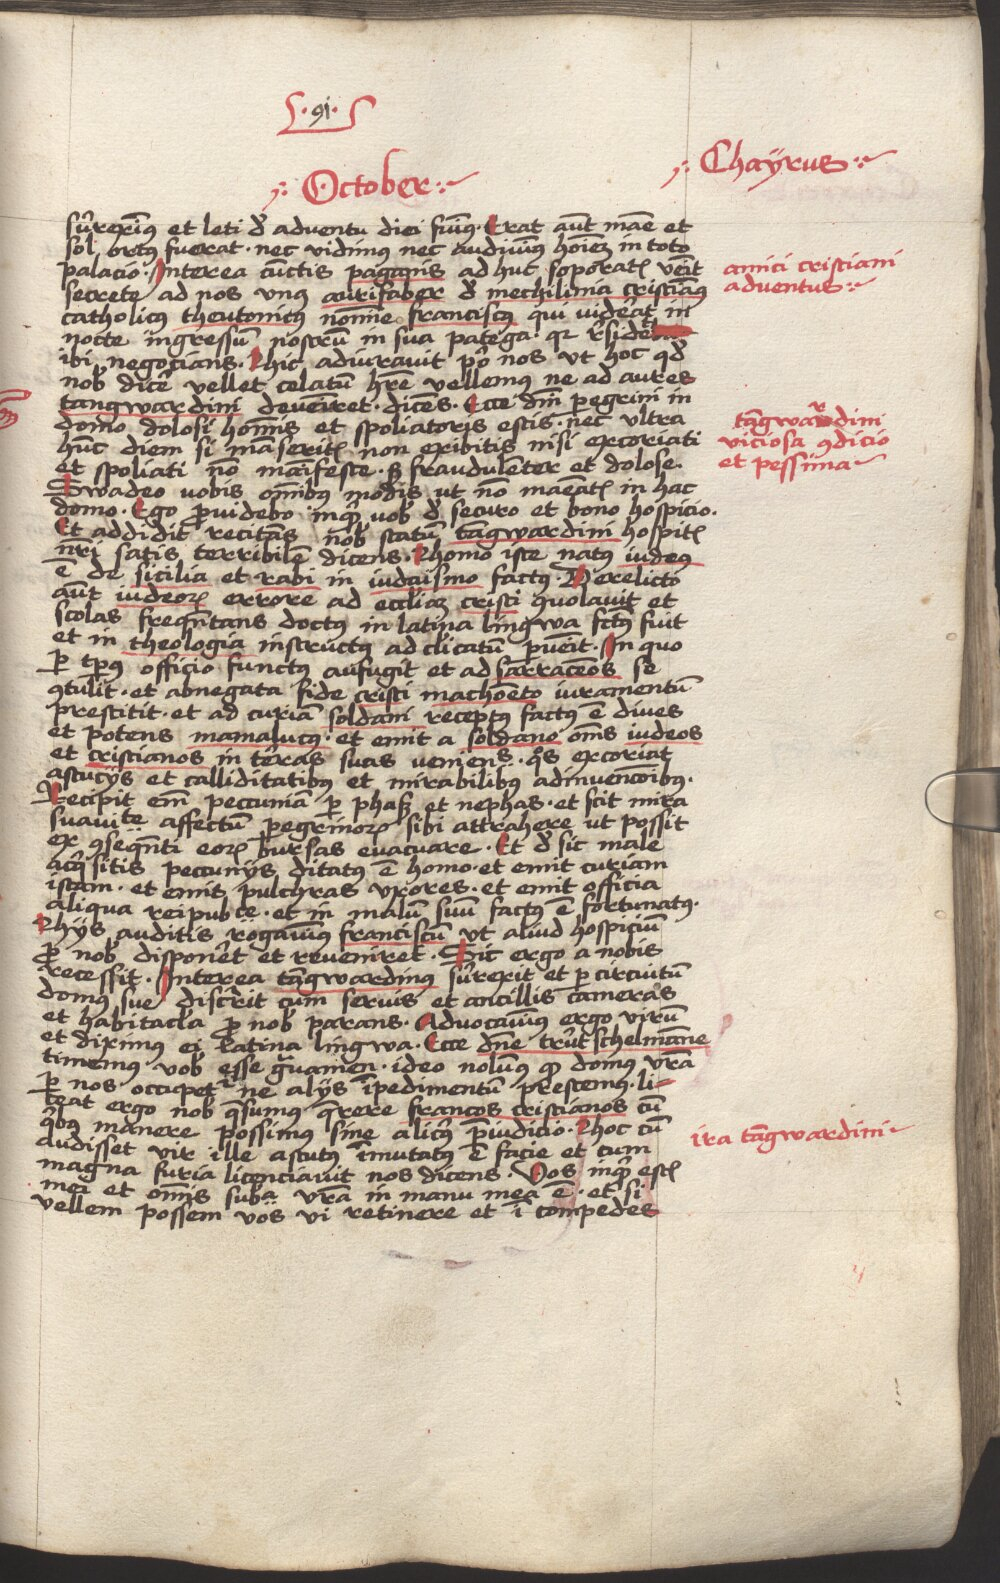 ·91·
October
Chayrus
surreximꝰ et leti ď adventu diei fuimꝰ. Erat aut̄ mane et
sol ortꝰ fuerat. nec vidimꝰ nec audivimꝰ hoiem̄ in toto
palacio. Interea cūctis paganis ad huc soporatꝭ veīt
secrete ad nos vnꝰ aurifaber ď mechilinia cristianꝰ
catholicꝰ theutonicꝰ nomīe franciscꝰ qui viderat in
nocte ingressū nostrū in sua patega. qr rͥsidet
ibi negocians. Hhic adiuravit pͦ nos vt hoc qď
nob̄ dice vellet celatū hr̄e vellemꝰ ne ad aures
tangwardini deveniret. dicēs. Ecce dn̄i peregrini in
domo dolosi homīs et spoliatoris estis. nec ultra
hūc diem si manseritꝭ non exibitis nisi excoriati
et spoliati nō manifeste. sꝫ fraudulēter et dolose.
Swadeo uobis omībꝰ modis ut nō maneatꝭ in hac
domo. Ego p̄videbo inqͥ vob̄ ď securo et bono hospicio.
Et addidit recitās nob̄ statū tāgwardini hospitꝭ
nr̄i satis terribilē dicens. Hhomo iste natꝰ iudeꝰ
ē de sicilia et rabi in iudaismo factꝰ. Derelicto
aut̄ iudeoꝝ errore ad eccliaꝫ cristi 9volavit et
scolas freqn̄tans doctꝰ in latina lingwa fctꝰ fuit
et in theologia instructꝰ ad clicatū pvenit. In quo
ꝑ tpꝰ officio functꝰ aufugit et ad sarracenos se
9tulit. et abnegata fide cristi machoēto iuramentū
prestitit. et ad curiā soldani receptꝰ factꝰ ē dives
et potens mamalucꝰ. et emit a soldano om̄s iudeos
et cristianos in terras suas veniens. qͦs excoriat
astucijs et calliditatibꝰ et mirabilibꝰ adinvencoībꝰ.
Recipit em̄ peccuniā ꝑ phaß et nephas. et scit mira
suavite affectū peregrinoꝝ sibi attrahere ut possit
ex 9seqn̄ti eoꝝ bursas evacuare. Et ď sic male
acqͥsitis peccunijs ditatꝰ ē homo. et emit curiam
istam. et emit pulchras vxores. et emit officia
aliqua reipub̄ce. et in malū suū factꝰ ē fortunatꝰ.
Hhijs auditis rogavimꝰ franciscū vt aliud hospiciū
ꝓ nob̄ disponeret et reveniret. Sic ergo a nobis
recessit. Interea tāgwardinꝰ surrexit et ꝑ circuitū
domꝰ sue discͥrit cum servis et ancillis cameras
et habitacla ꝓ nob̄ parans. Advocavimꝰ ergo virū
et diximꝰ ei latina lingwa. Ecce dn̄e trutschelmāne
timemꝰ vob̄ esse gͣuamen. ideo nolumꝰ qͥ domꝰ vr̄a
ꝑ nos occupetͬ ne alijs īpedimentū prestemꝰ. li-
ceat ergo nob̄ qͣsumꝰ qͣrere francos cristianos cū
qͥbꝰ manere possimꝰ sine alicꝰ p̄iudicio. Hhoc cū
audisset vir ille astutꝰ imutatꝰ ē facie et cum
magna furia licenciavit nos dicens. Vos inqͥ estꝭ
mei et om̄is suba vr̄a in manu mea ē. et si
vellem possem vos vi retinere et ī compedes
amici cristiani
adventus
tāgwardini
viciosa 9dicio
et pessima
ira tāgwardini